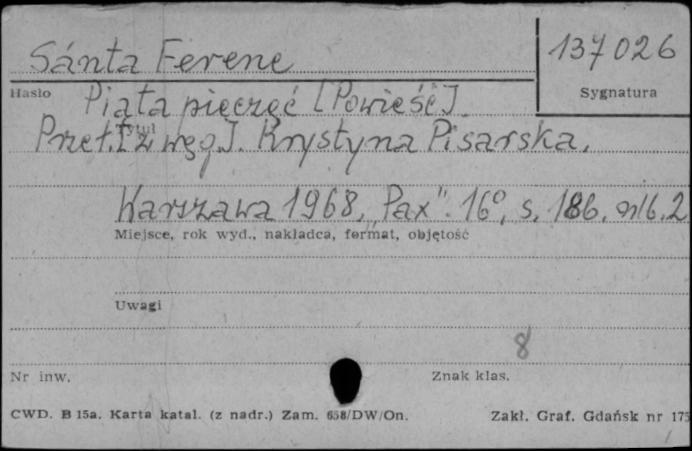 Sánta Ferenc
137026
Hasło
Sygnatura
Piąta pieczęć [Powieść].
Tytuł
Przeł. [z węg.]. Krystyna Pisarska.
Warszawa 1968, „Pax". 16°, s. 186, nlb. 2
Miejsce, rok wyd., nakładca, format, objętość
Uwagi
8
Nr inw.
Znak klas.
CWD. B 15a. Karta katal. (z nadr.) Zam. 658/DW/On.
Zakł. Graf. Gdańsk nr 175